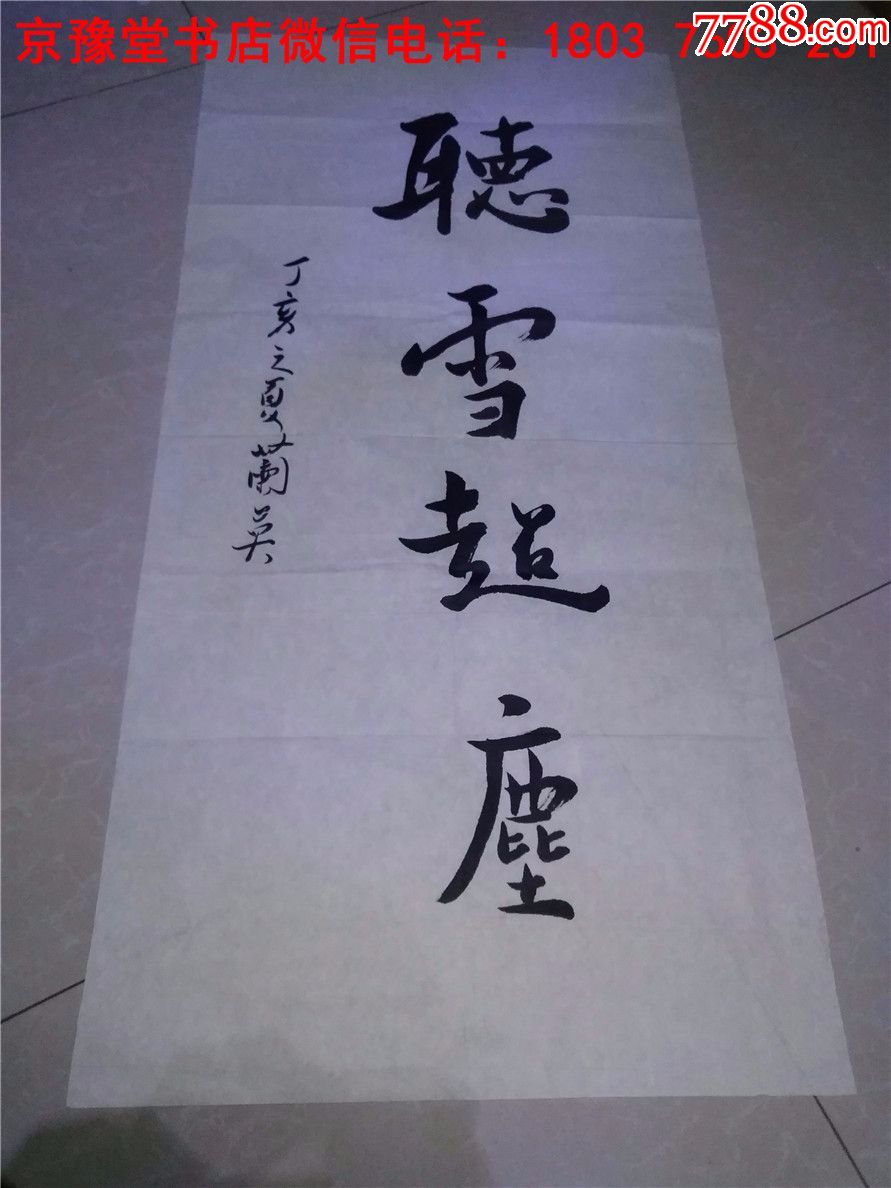 京豫堂书店微信电话：1803
7788.com
聽雪超塵
丁亥之夏蘭英